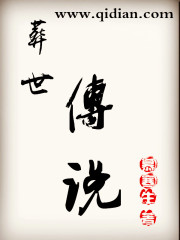 www.qidian.com
葬世
傳说